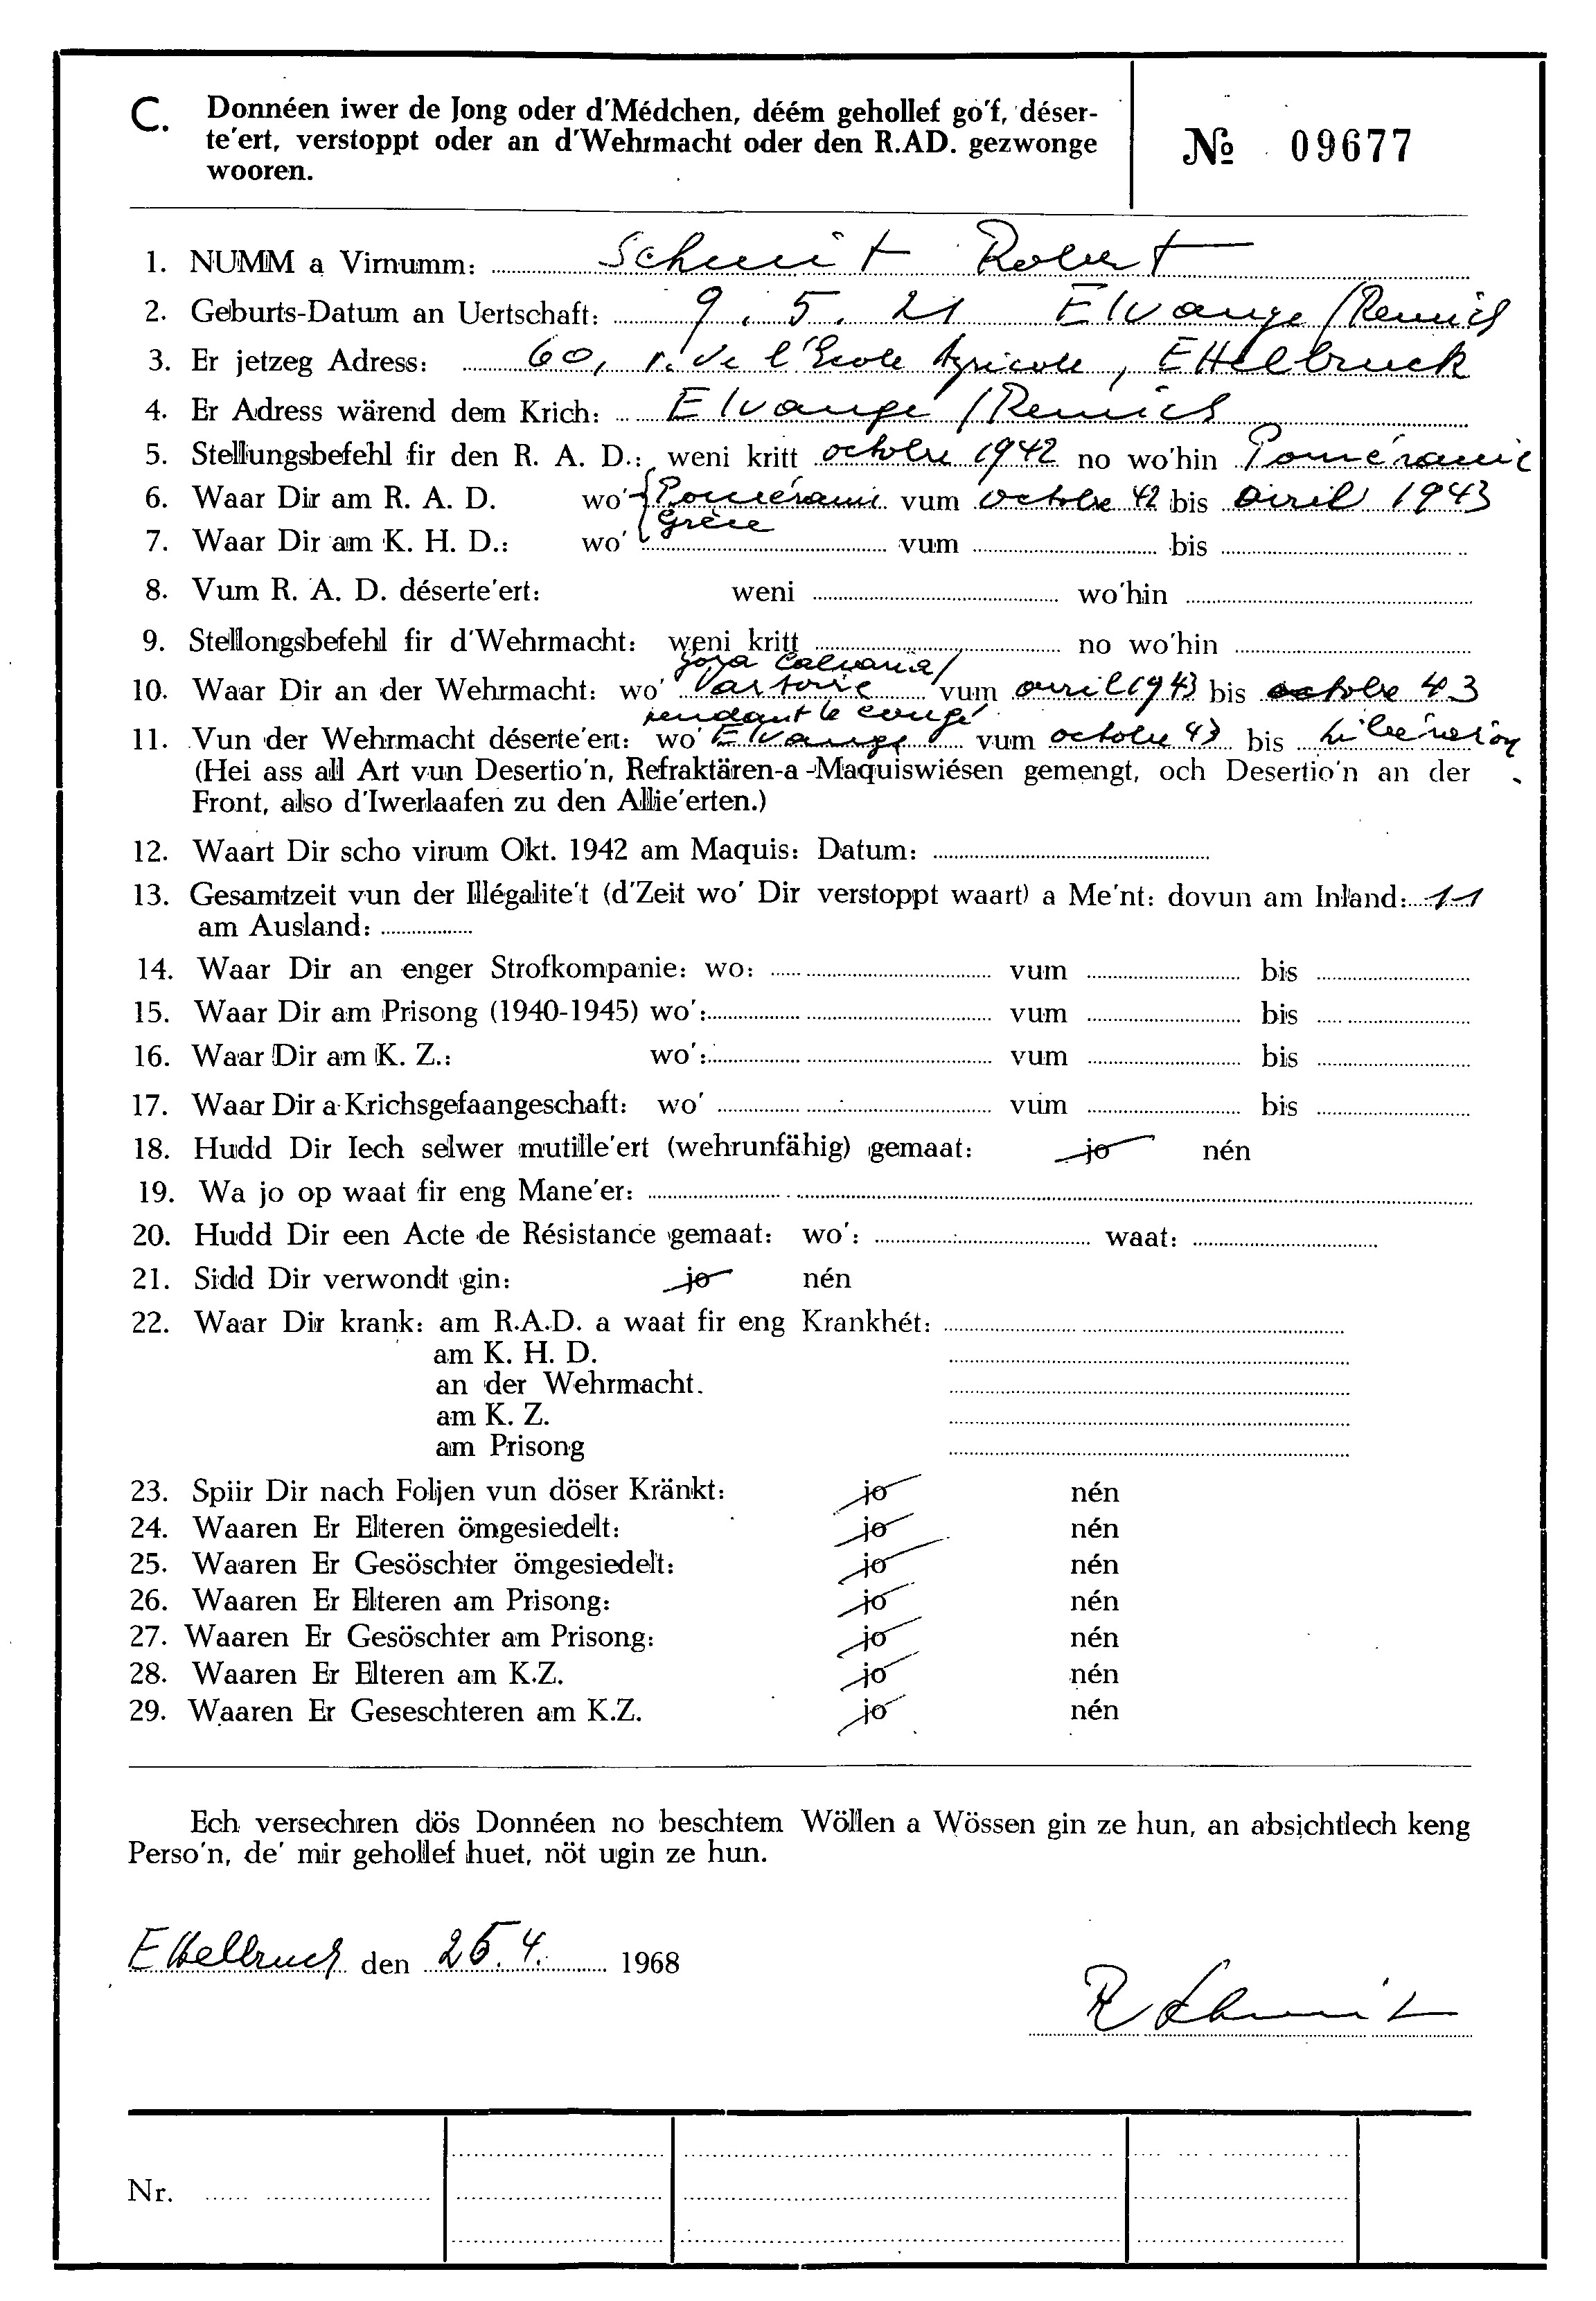 C. Donnéen iwer de Jong oder d'Médchen, déém gehollef go'f, déser-
te'ert, verstoppt oder an d'Wehrmacht oder den R.AD. gezwonge
wooren.
№ 09677
1. NUMM a Virnumm: Schmit Robert
2. Geburts-Datum an Uertschaft: 9.5.21 Elvange/Remich
3. Er jetzeg Adress: 60, r. de l'Ecole Agricole, Ettelbruck
4. Er Adress wärend dem Krich: Elvange/Remich
5. Stellungsbefehl fir den R. A. D.: weni kritt octobre 1942 no wo'hin Poméranie
6. Waar Dir am R. A. D. wo' Poméranie vum octobre 42 bis avril 1943
Grèce
7. Waar Dir am K. H. D.: wo' vum bis
8. Vum R. A. D. déserte'ert: weni wo'hin
9. Stellongsbefehl fir d'Wehrmacht: weni kritt no wo'hin
10. Waar Dir an der Wehrmacht: wo' vum avril 1943 bis octobre 43
pendant le congé
11. Vun der Wehrmacht déserte'ert: wo' Elvange vum octobre 43 bis Libération
(Hei ass all Art vun Desertio'n, Refraktären-a-Maquiswiésen gemengt, och Desertio'n an der
Front, also d'Iwerlaafen zu den Allie'erten.)
12. Waart Dir scho virum Okt. 1942 am Maquis: Datum:
13. Gesamtzeit vun der Illégalite't (d'Zeit wo' Dir verstoppt waart) a Me'nt: dovun am Inland: 11
am Ausland:
14. Waar Dir an enger Strofkompanie: wo: vum bis
15. Waar Dir am Prisong (1940-1945) wo': vum bis
16. Waar Dir am K. Z.: wo': vum bis
17. Waar Dir a Krichsgefaangeschaft: wo' vum bis
18. Hudd Dir Iech selwer mutille'ert (wehrunfähig) gemaat: jo nén
19. Wa jo op waat fir eng Mane'er:
20. Hudd Dir een Acte de Résistance gemaat: wo': waat:
21. Sidd Dir verwondt gin: jo nén
22. Waar Dir krank: am R.A.D. a waat fir eng Krankhét:
am K. H. D.
an der Wehrmacht.
am K. Z.
am Prisong
23. Spiir Dir nach Foljen vun döser Kränkt: jo nén
24. Waaren Er Elteren ömgesiedelt: jo nén
25. Waaren Er Gesöschter ömgesiedelt: jo nén
26. Waaren Er Elteren am Prisong: jo nén
27. Waaren Er Gesöschter am Prisong: jo nén
28. Waaren Er Elteren am K.Z. jo nén
29. Waaren Er Geseschteren am K.Z. jo nén
Ech versechren dös Donnéen no beschtem Wöllen a Wössen gin ze hun, an absichtlech keng
Perso'n, de' mir gehollef huet, nöt ugin ze hun.
Ettelbruck den 25.4. 1968
R Schmit
Nr.